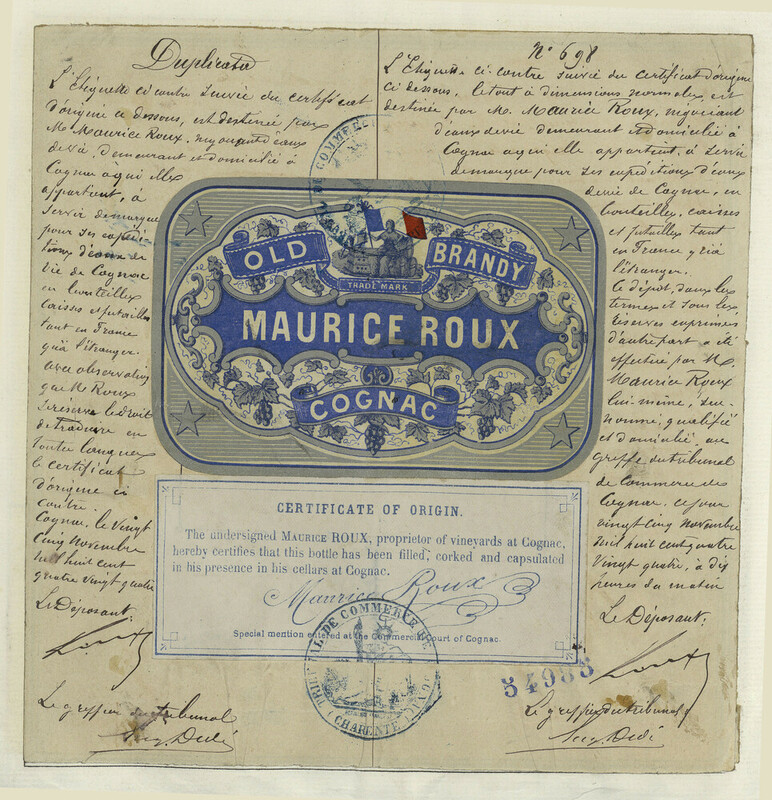 Duplicata
L'Etiquette ci contre suivie du certificat
d'origine ci dessous, est destinée par
M. Maurice Roux, négociant d'eaux
de vie, demeurant et domicilié à
Cognac à qui elle
appartient, à
servir de marque
pour ses expédi
tions d'eaux de
vie de Cognac
en bouteilles
caisses et futailles
tant en France
qu'à l'étranger.
Avec observation
que M. Roux
se réserve le droit
de traduire en
toutes langues
le certificat
d'origine ci
contre.
Cognac, le vingt
cinq Novembre
mil huit cent
quatre vingt quatre
Le Déposant:
Roux
Le greffier du tribunal
N° 698
L'Etiquette ci-contre suivie du certificat d'origine
ci dessous, le tout à dimensions normales, est
destinée par M. Maurice Roux, négociant
d'eaux de vie demeurant et domicilié à
Cognac à qui elle appartient, à servir
de marque pour ses expéditions d'eaux
de vie de Cognac, en
bouteilles, caisses
et futailles tant
en France qu'à
l'étranger.
Ce dépôt, dans les
termes et sous les
réserves exprimées
d'autre part a été
effectué par M.
Maurice Roux
lui-même, sus-
nommé, qualifié
et domicilié, au
greffe du tribunal
de Commerce de
Cognac, ce jour
vingt cinq Novembre
mil huit cent quatre
vingt quatre, à dix
heures du matin
Le Déposant:
Roux
Le greffier du tribunal
OLD BRANDY
TRADE MARK
MAURICE ROUX
COGNAC
CERTIFICATE OF ORIGIN.
The undersigned MAURICE ROUX, proprietor of vineyards at Cognac,
hereby certifies that this bottle has been filled, corked and capsulated
in his presence in his cellars at Cognac.
Maurice Roux
Special mention entered at the Commercial Court of Cognac.
TRIBUNAL DE COMMERCE DE
(CHARENTE)